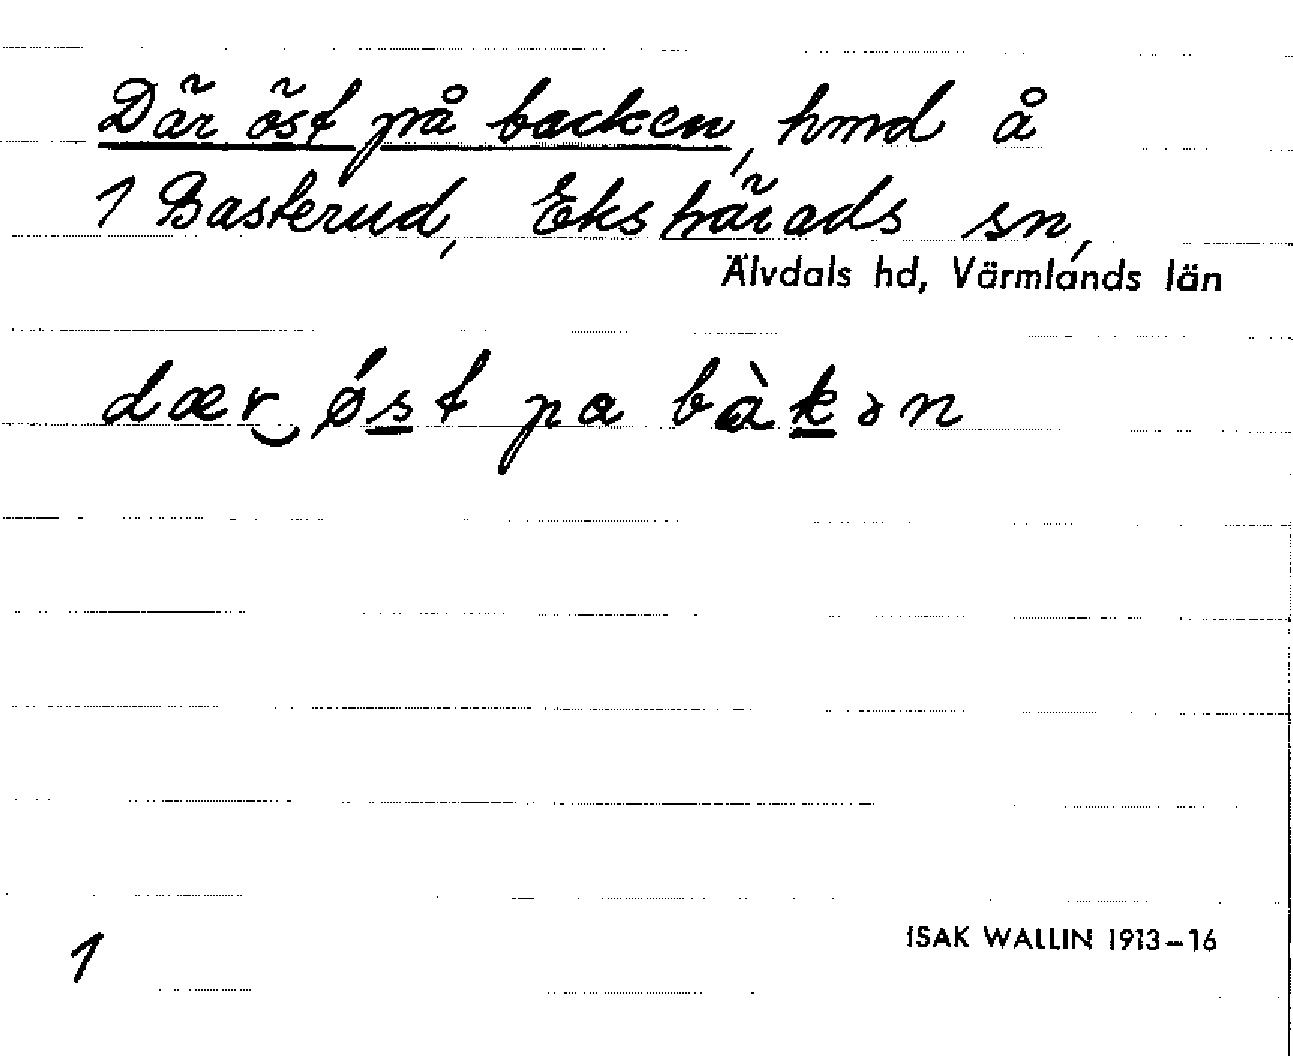 Där öst på backen, hmd å
1 Basterud, Ekshärads sn,
Älvdals hd, Värmlands län
dær øst pa bàkən
1
ISAK WALLIN 1913–16